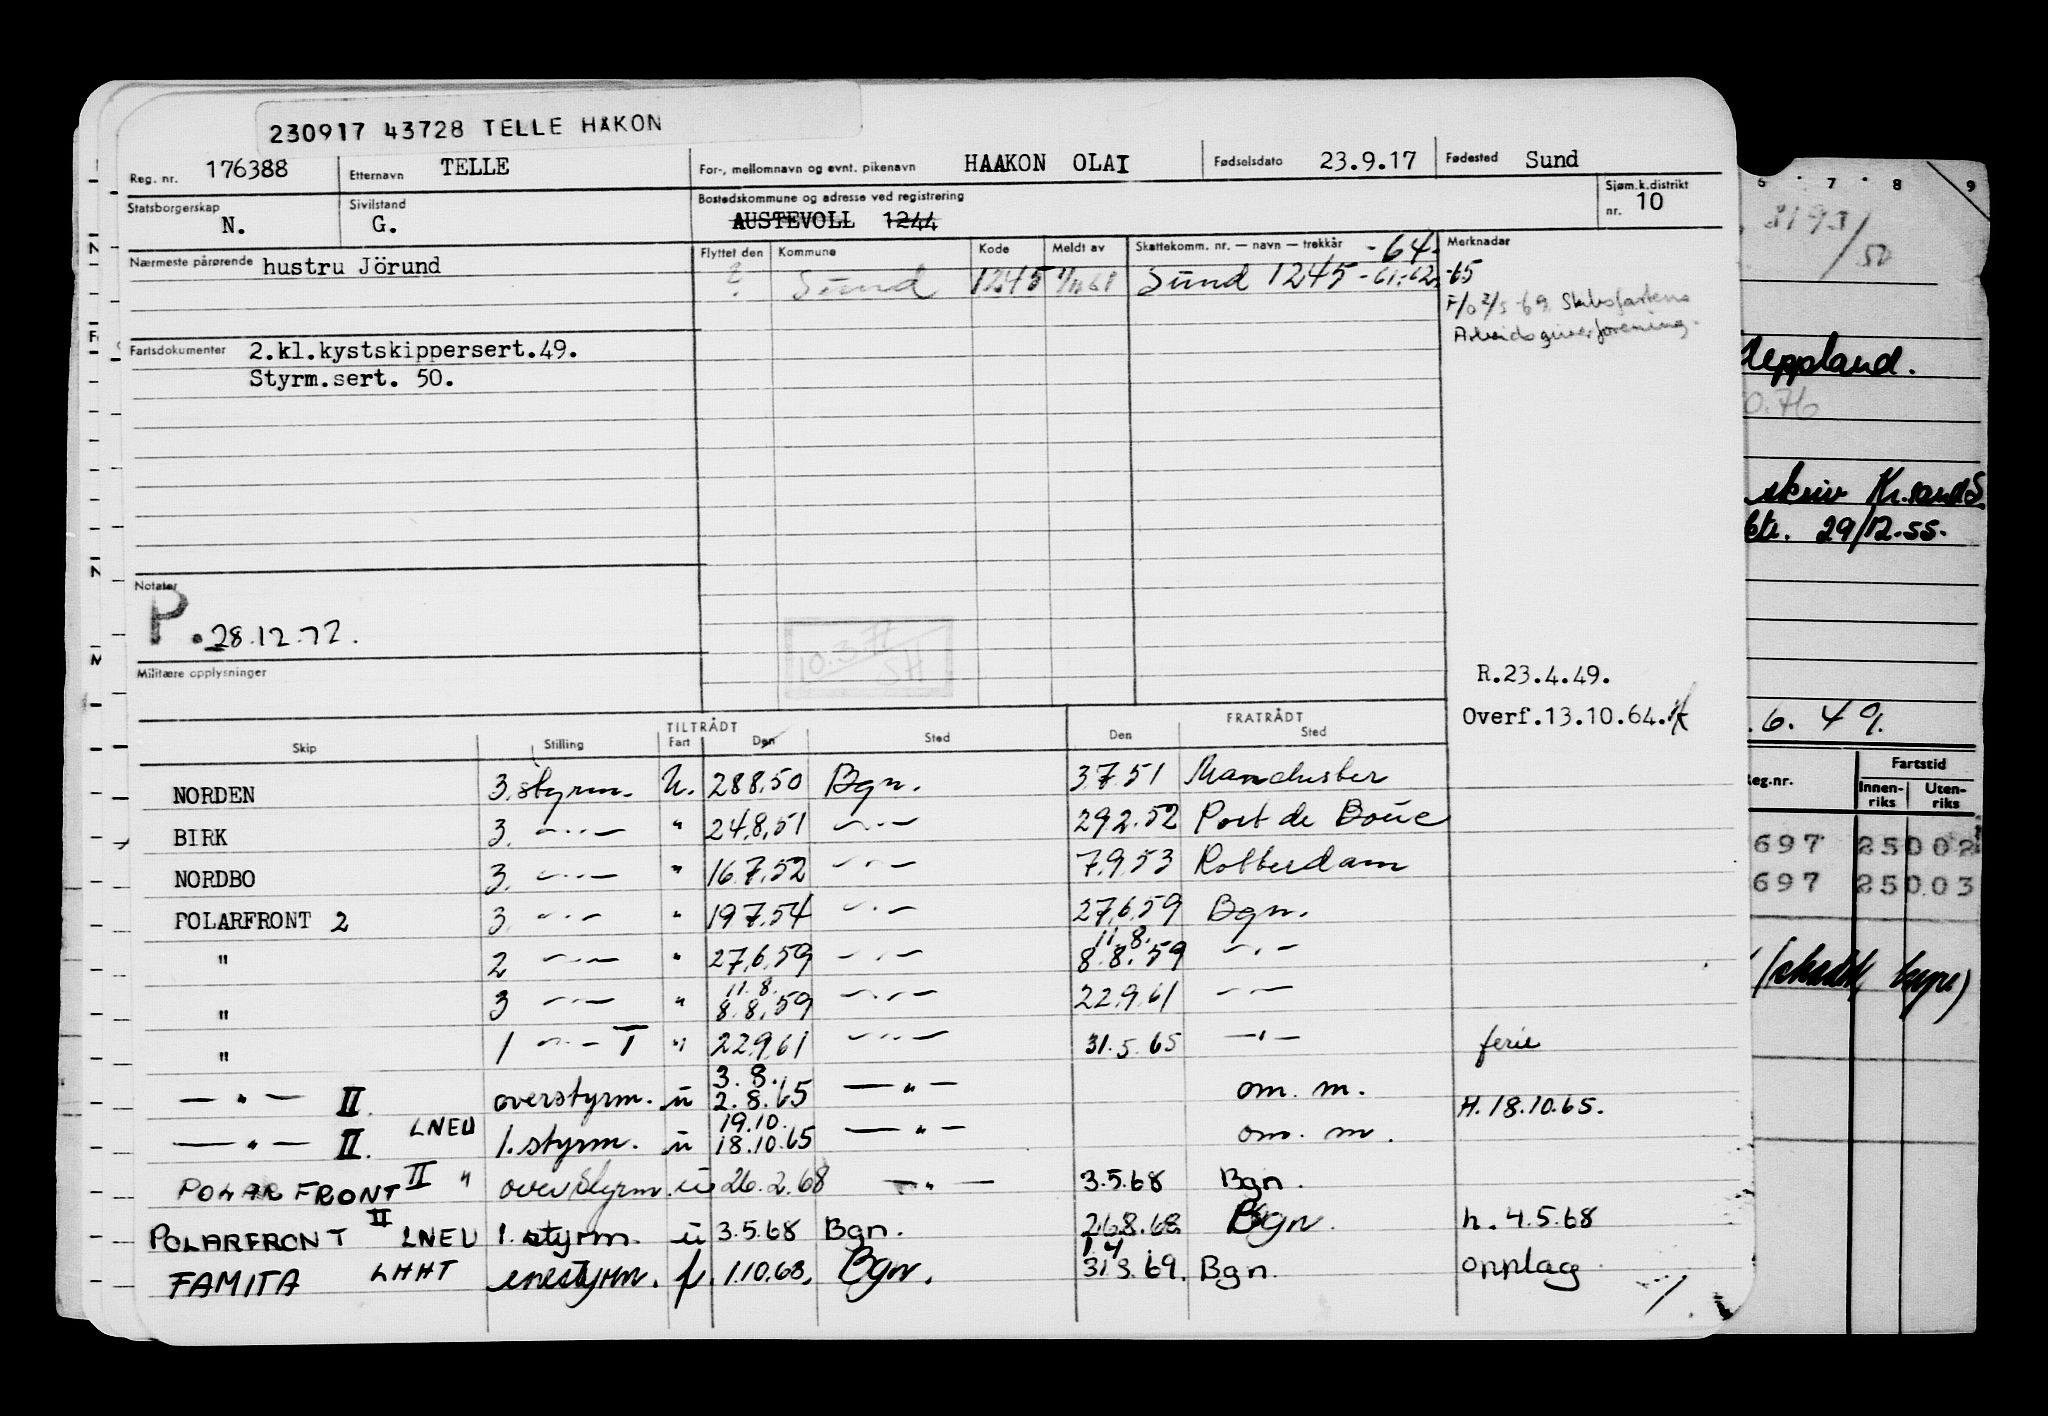 230917 43728 TELLE HAKON
Reg. nr. 176388 Etternavn TELLE For-, mellomnavn og evnt. pikenavn HAAKON OLAI Fødselsdato 23.9.17 Fødested Sund
Statsborgerskap N. Sivilstand G. Bostedskommune og adresse ved registrering AUSTEVOLL 1244 Sjøm.k.distrikt nr. 10
Nærmeste pårørende hustru Jörund Flyttet den Kommune Kode Meldt av Skattekomm. nr. — navn — trekkår -64. Merknader
? Sund 1245 Sund 1245 -61-62. -65
F/o 2/5-69 Skibsfartens
Arbeidsgiverforening.
Fartsdokumenter 2.kl.kystskippersert.49.
Styrm.sert. 50.
Notater
P. 28.12.72.
10.3.71
SH
Militære opplysninger
R.23.4.49.
Overf.13.10.64.
TILTRÅDT FRATRÅDT
Skip Stilling Fart Den Sted Den Sted
NORDEN 3. styrm. U. 28.8.50 Bgn. 3.7.51 Manchester
BIRK 3. —"— " 24.8.51 —"— 29.2.52 Port de Bouc
NORDBO 3. —"— " 16.7.52 —"— 7.9.53 Rotterdam
POLARFRONT 2 3. —"— " 19.7.54 —"— 27.6.59 Bgn.
" 2 —"— " 27.6.59 —"— 11.8. 8.8.59 —"—
" 3 —"— " 11.8. 8.8.59 —"— 22.9.61 —"—
" 1 —"— T " 22.9.61 —"— 31.5.65 —"— ferie
—"— II. overstyrm. u 3.8. 2.8.65 —"— om. m. H.18.10.65.
—"— II. LNEU 1. styrm. u 19.10. 18.10.65 —"— om. m.
POLARFRONT II " overstyrm. u 26.2.68 —"— 3.5.68 Bgn.
POLARFRONT II LNEU 1. styrm. u 3.5.68 Bgn. 26.8.68. Bgn. h. 4.5.68
FAMITA LHHT enestyrm. f. 1.10.68. Bgn. 1.4 31.3.69. Bgn. opplag
6 7 8 9
3193/50
Heppland.
0.76
skriv Kr.sand S.
29/12-55.
.6. 49.
Reg.nr. Fartstid
Innen-riks Uten-riks
697 25002
697 25003